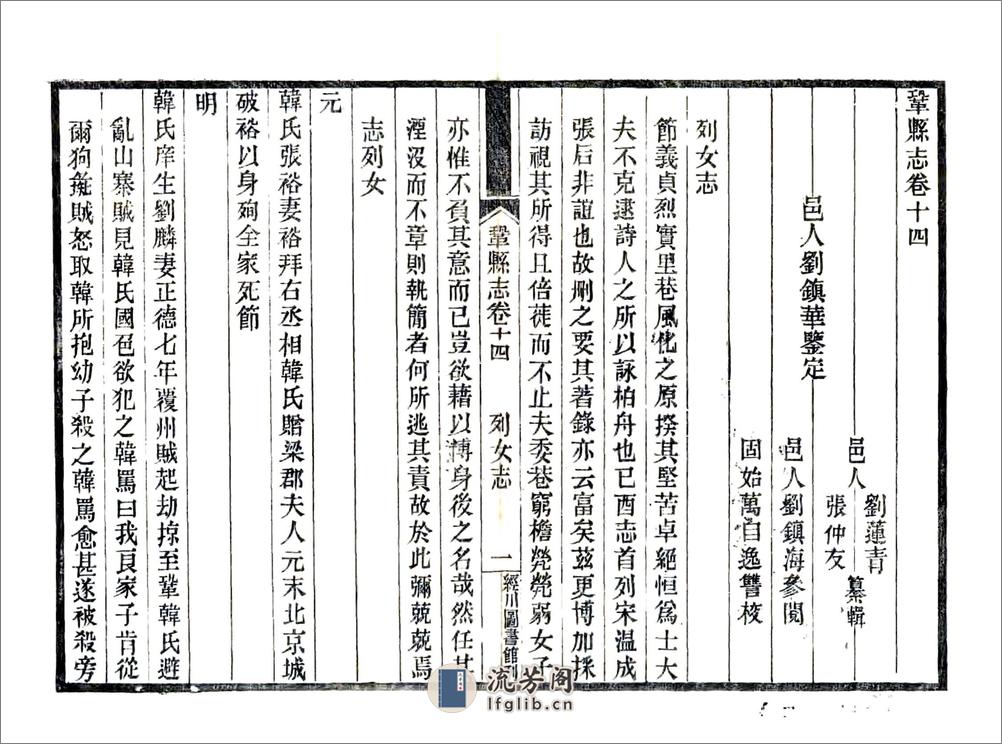 鞏縣志卷十四
邑人劉鎮華鑒定
邑人 劉蓮青
張仲友 纂輯
邑人劉鎮海參閱
固始萬自逸讐校
列女志
節義貞烈實里巷風化之原揆其堅苦卓絕恒爲士大
夫不克逮詩人之所以詠柏舟也已酉志首列宋温成
張后非誼也故刪之要其著錄亦云富矣茲更博加採
訪視其所得且倍徙而不止夫委巷窮檐煢煢弱女子
鞏縣志卷十四 列女志 一 經川圖書館刊
亦惟不負其意而已豈欲藉以博身後之名哉然任其
湮沒而不章則執簡者何所逃其責故於此彌兢兢焉
志列女
元
韓氏張裕妻裕拜右丞相韓氏贈梁郡夫人元末北京城
破裕以身殉全家死節
明
韓氏庠生劉麟妻正德七年覆州賊起劫掠至鞏韓氏避
亂山寨賊見韓氏國色欲犯之韓罵曰我良家子肯從
爾狗彘賊怒取韓所抱幼子殺之韓罵愈甚遂被殺旁
流芳阁
lfglib.cn